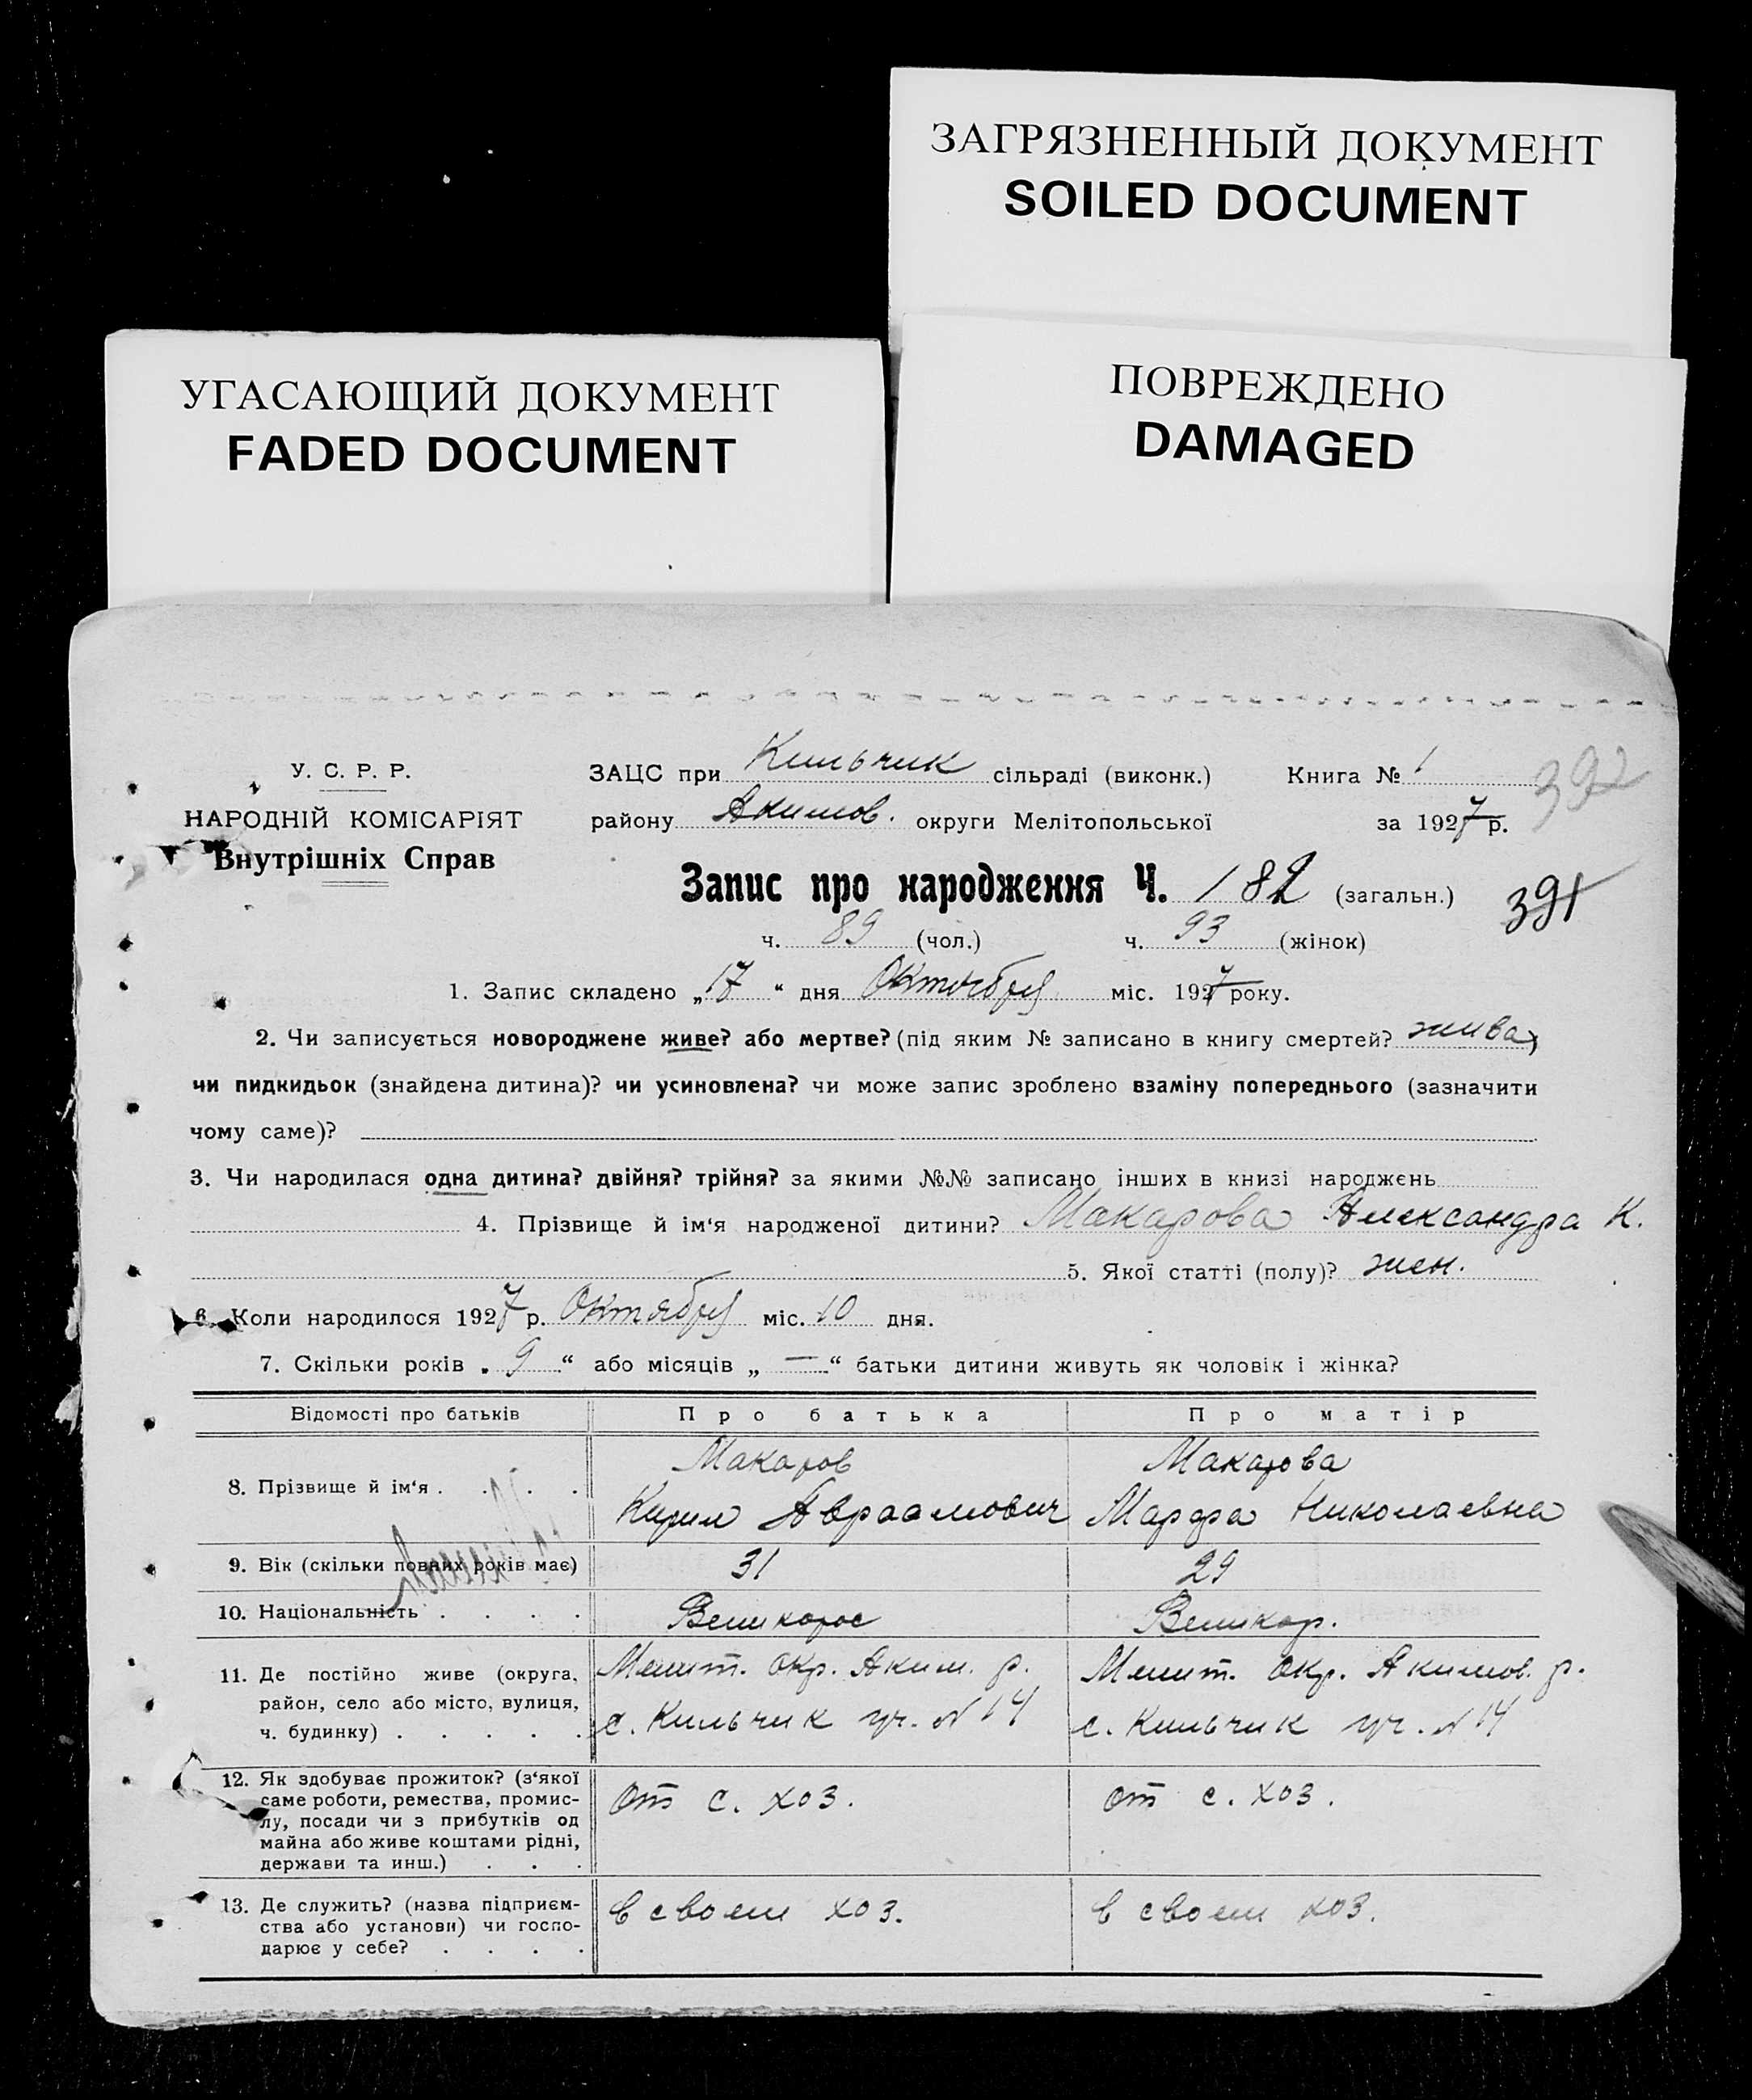 ЗАГРЯЗНЕННЫЙ ДОКУМЕНТ
SOILED DOCUMENT
УГАСАЮЩИЙ ДОКУМЕНТ
FADED DOCUMENT
ПОВРЕЖДЕНО
DAMAGED
У. С. Р. Р.
НАРОДНІЙ КОМІСАРІЯТ
Внутрішніх Справ
ЗАЦС при Кильчик сільраді (виконк.) Книга № 1
392
району Акимов. округи Мелітопольської за 1927 р.
Запис про народження Ч. 182 (загальн.)
391
ч. 89 (чол.) ч. 93 (жінок)
1. Запис складено „17“ дня Октября міс. 1927 року.
2. Чи записується новороджене живе? або мертве? (під яким № записано в книгу смертей? жива,
чи пидкидьок (знайдена дитина)? чи усиновлена? чи може запис зроблено взаміну попереднього (зазначити
чому саме)?
3. Чи народилася одна дитина? двійня? трійня? за якими №№ записано інших в книзі народжень
4. Прізвище й ім‘я народженої дитини? Макарова Александра К.
5. Якої статті (полу)? жен.
6. Коли народилося 1927 р. Октября міс. 10 дня.
7. Скільки років „ 9 “ або місяців „ — “ батьки дитини живуть як чоловік і жінка?
Відомості про батьків Про батька Про матір
8. Прізвище й ім‘я . . . .
Макаров
Кирил Авраамович
Макарова
Марфа Николаевна
9. Вік (скільки повних років має) 31 29
10. Національність . . . . Великорос Великор.
11. Де постійно живе (округа,
район, село або місто, вулиця,
ч. будинку) . . . . .
Мелит. окр. Аким. р.
с. Кильчик уч. N 14
Мелит. окр. Акимов. р.
с. Кильчик уч. N 14
12. Як здобуває прожиток? (з‘якої
саме роботи, ремества, промис-
лу, посади чи з прибутків од
майна або живе коштами рідні,
держави та инш.) . . .
От с. хоз.
от с. хоз.
13. Де служить? (назва підприєм-
ства або установи) чи госпо-
дарює у себе? . . . .
в своем хоз.
в своем хоз.